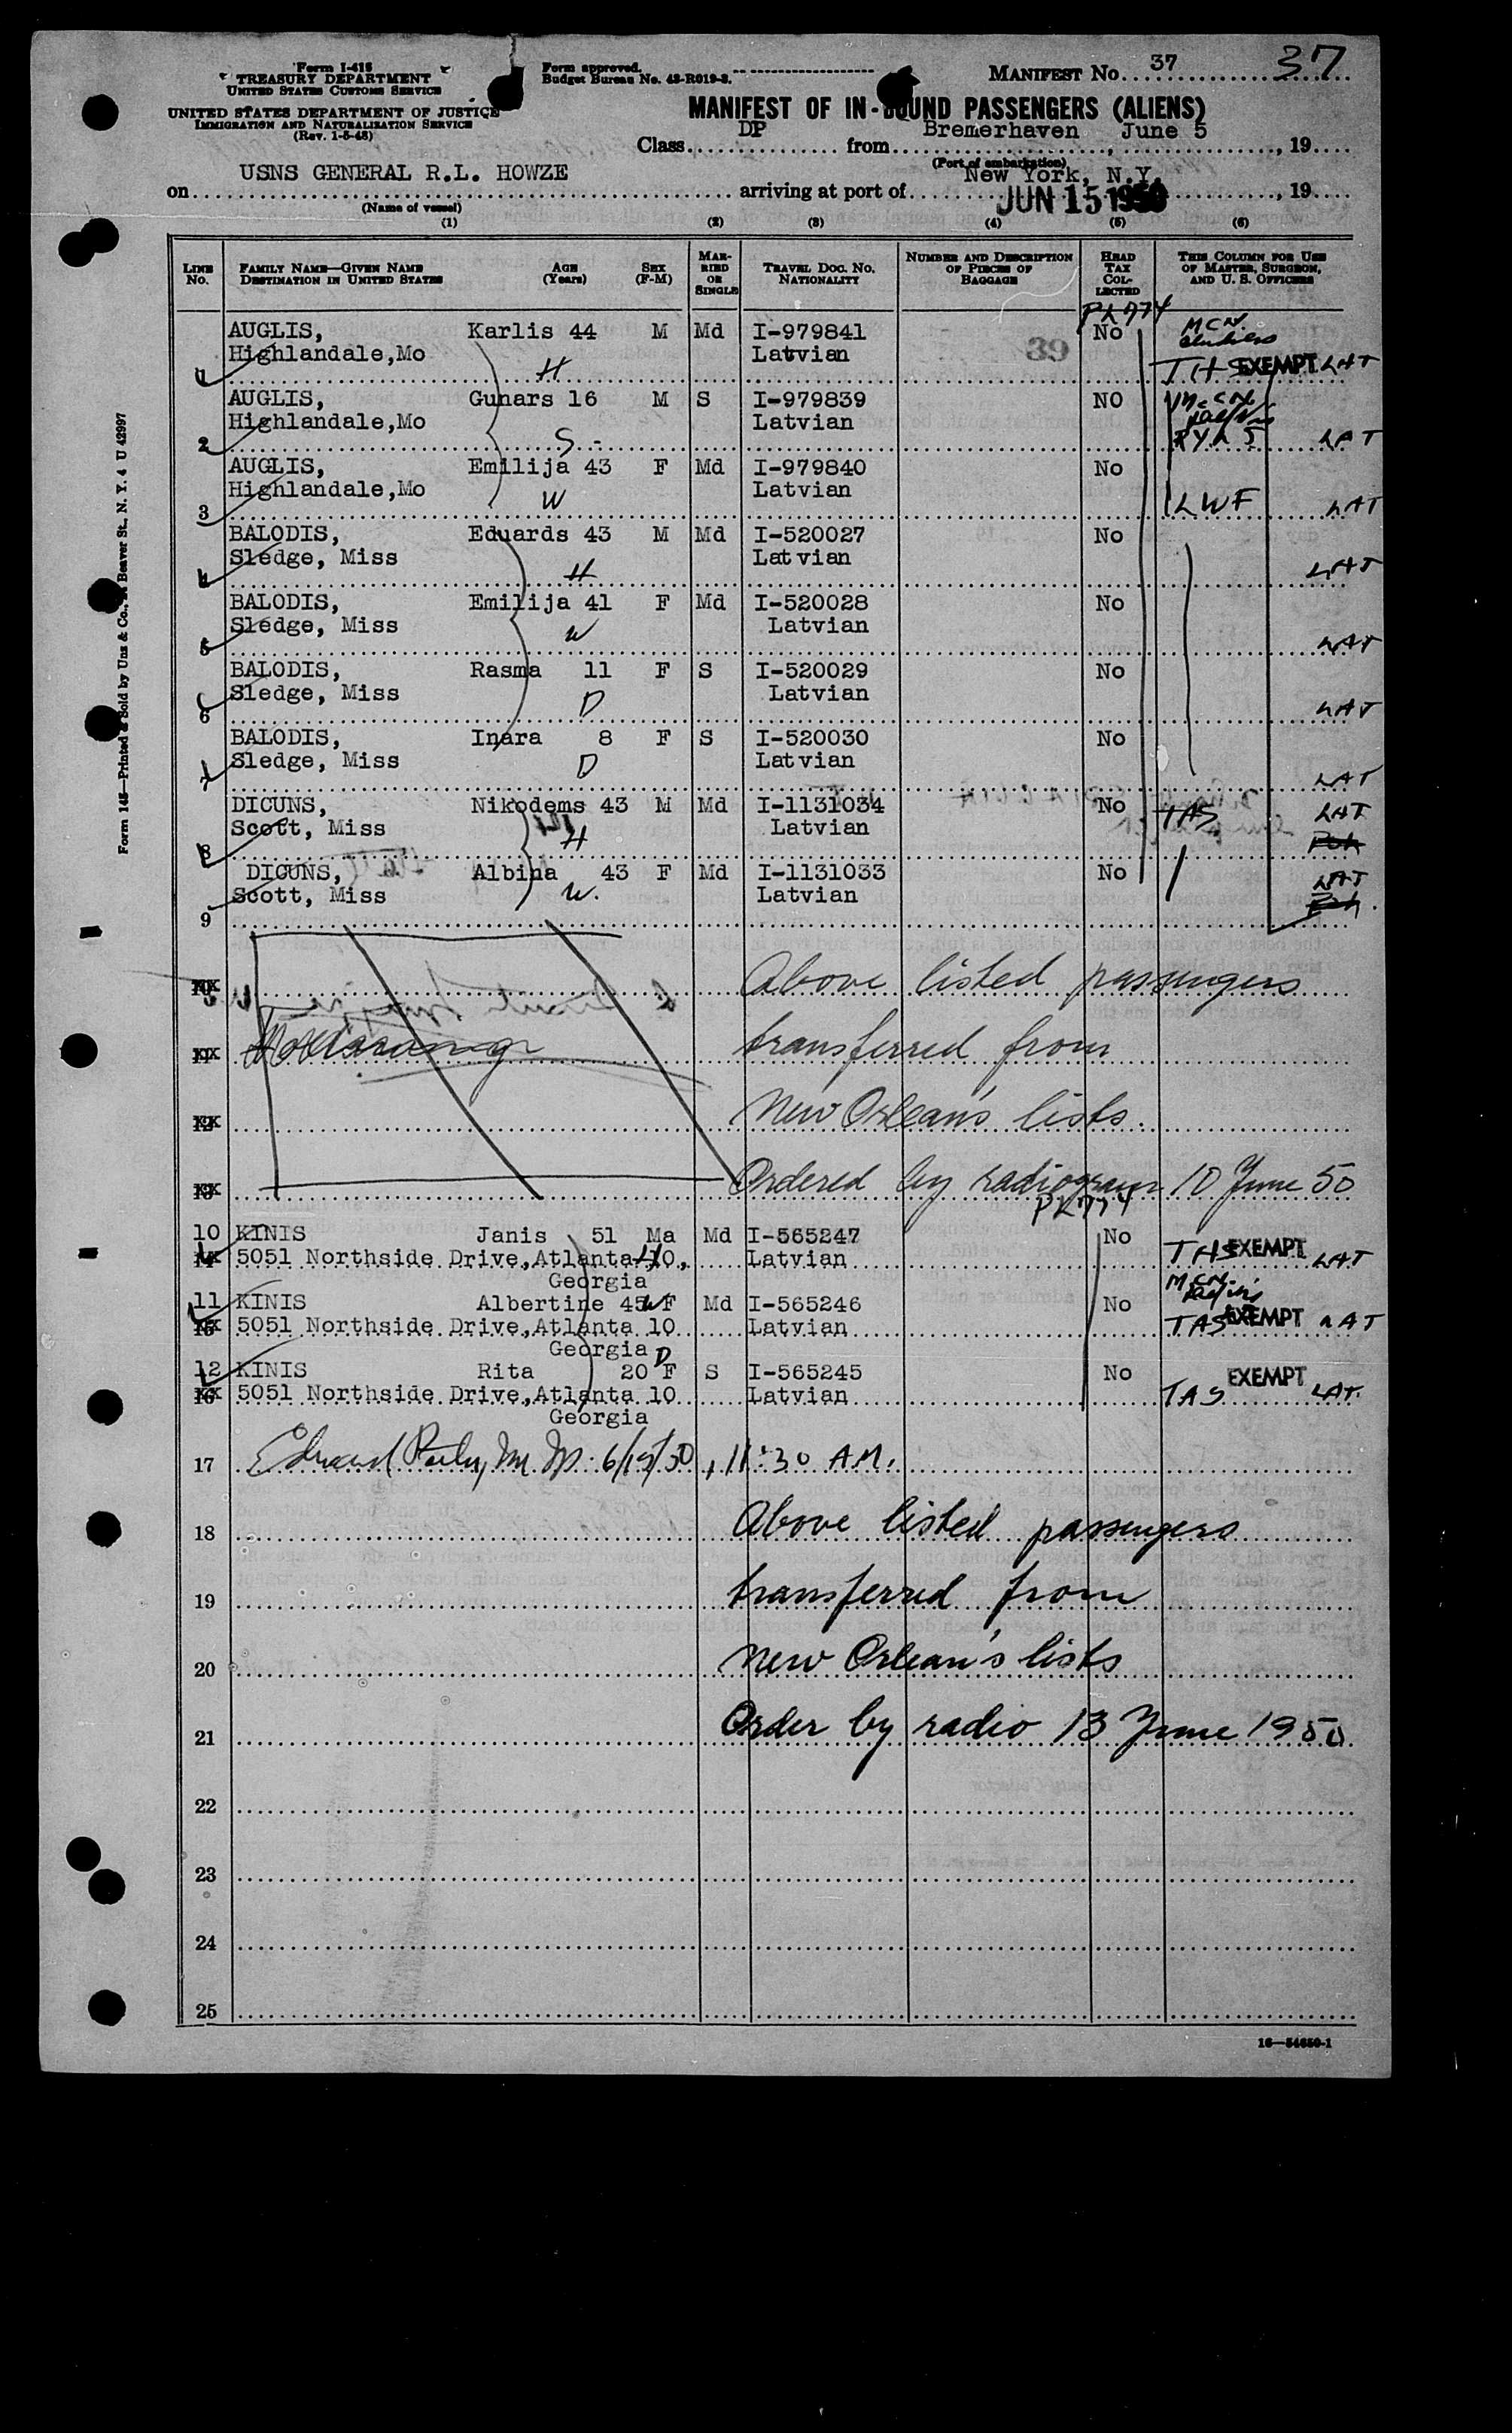 Form I-415
TREASURY DEPARTMENT
UNITED STATES CUSTOMS SERVICE
UNITED STATES DEPARTMENT OF JUSTICE
IMMIGRATION AND NATURALIZATION SERVICE
(Rev. 1-5-48)
Form approved.
Budget Bureau No. 43-R019-3.
MANIFEST No. 37 37
MANIFEST OF IN-BOUND PASSENGERS (ALIENS)
Class DP from Bremerhaven, June 5, 19
(Port of embarkation)
on USNS GENERAL R.L. HOWZE arriving at port of New York, N.Y. JUN 15 1950, 19
(Name of vessel)
(1) (2) (3) (4) (5) (6)
LINE No. FAMILY NAME—GIVEN NAME DESTINATION IN UNITED STATES AGE (Years) SEX (F-M) MARRIED OR SINGLE TRAVEL DOC. NO. NATIONALITY NUMBER AND DESCRIPTION OF PIECES OF BAGGAGE HEAD TAX COLLECTED THIS COLUMN FOR USE OF MASTER, SURGEON, AND U. S. OFFICERS
39
AUGLIS, Karlis 44 M Md I-979841 No
Highlandale,Mo H Latvian
1 EXEMPT LAT
AUGLIS, Gunars 16 M S I-979839 NO
Highlandale,Mo Latvian
2 S LAT
AUGLIS, Emilija 43 F Md I-979840 No
Highlandale,Mo Latvian
3 W LWF LAT
BALODIS, Eduards 43 M Md I-520027 No
Sledge, Miss Latvian
4 H LAT
BALODIS, Emilija 41 F Md I-520028 No
Sledge, Miss Latvian
5 W LAT
BALODIS, Rasma 11 F S I-520029 No
Sledge, Miss Latvian
6 D LAT
BALODIS, Inara 8 F S I-520030 No
Sledge, Miss Latvian
7 D LAT
DICUNS, Nikodems 43 M Md I-1131034 No TAS LAT
Scott, Miss H Latvian
8
DICUNS, Albina 43 F Md I-1131033 No LAT
Scott, Miss W. Latvian
9
Above listed passengers
transferred from
New Orlean's lists.
Ordered by radiogram 10 June 50
10 KINIS Janis 51 Ma Md I-565247 No
5051 Northside Drive,Atlanta 10, Latvian THS EXEMPT LAT
Georgia
11 KINIS Albertine 45 W F Md I-565246 No
5051 Northside Drive,Atlanta 10 Latvian TAS EXEMPT LAT
Georgia D
12 KINIS Rita 20 F S I-565245 No EXEMPT
5051 Northside Drive,Atlanta 10 Latvian TAS LAT.
Georgia
17 Edward M.D. 6/15/50, 11:30 A.M.
18 Above listed passengers
19 transferred from
20 New Orlean's lists
21 Order by radio 13 June 1950
22
23
24
25
16—54650-1
Form 145—Printed & Sold by Uns & Co., Beaver St., N. Y. 4 U 42997